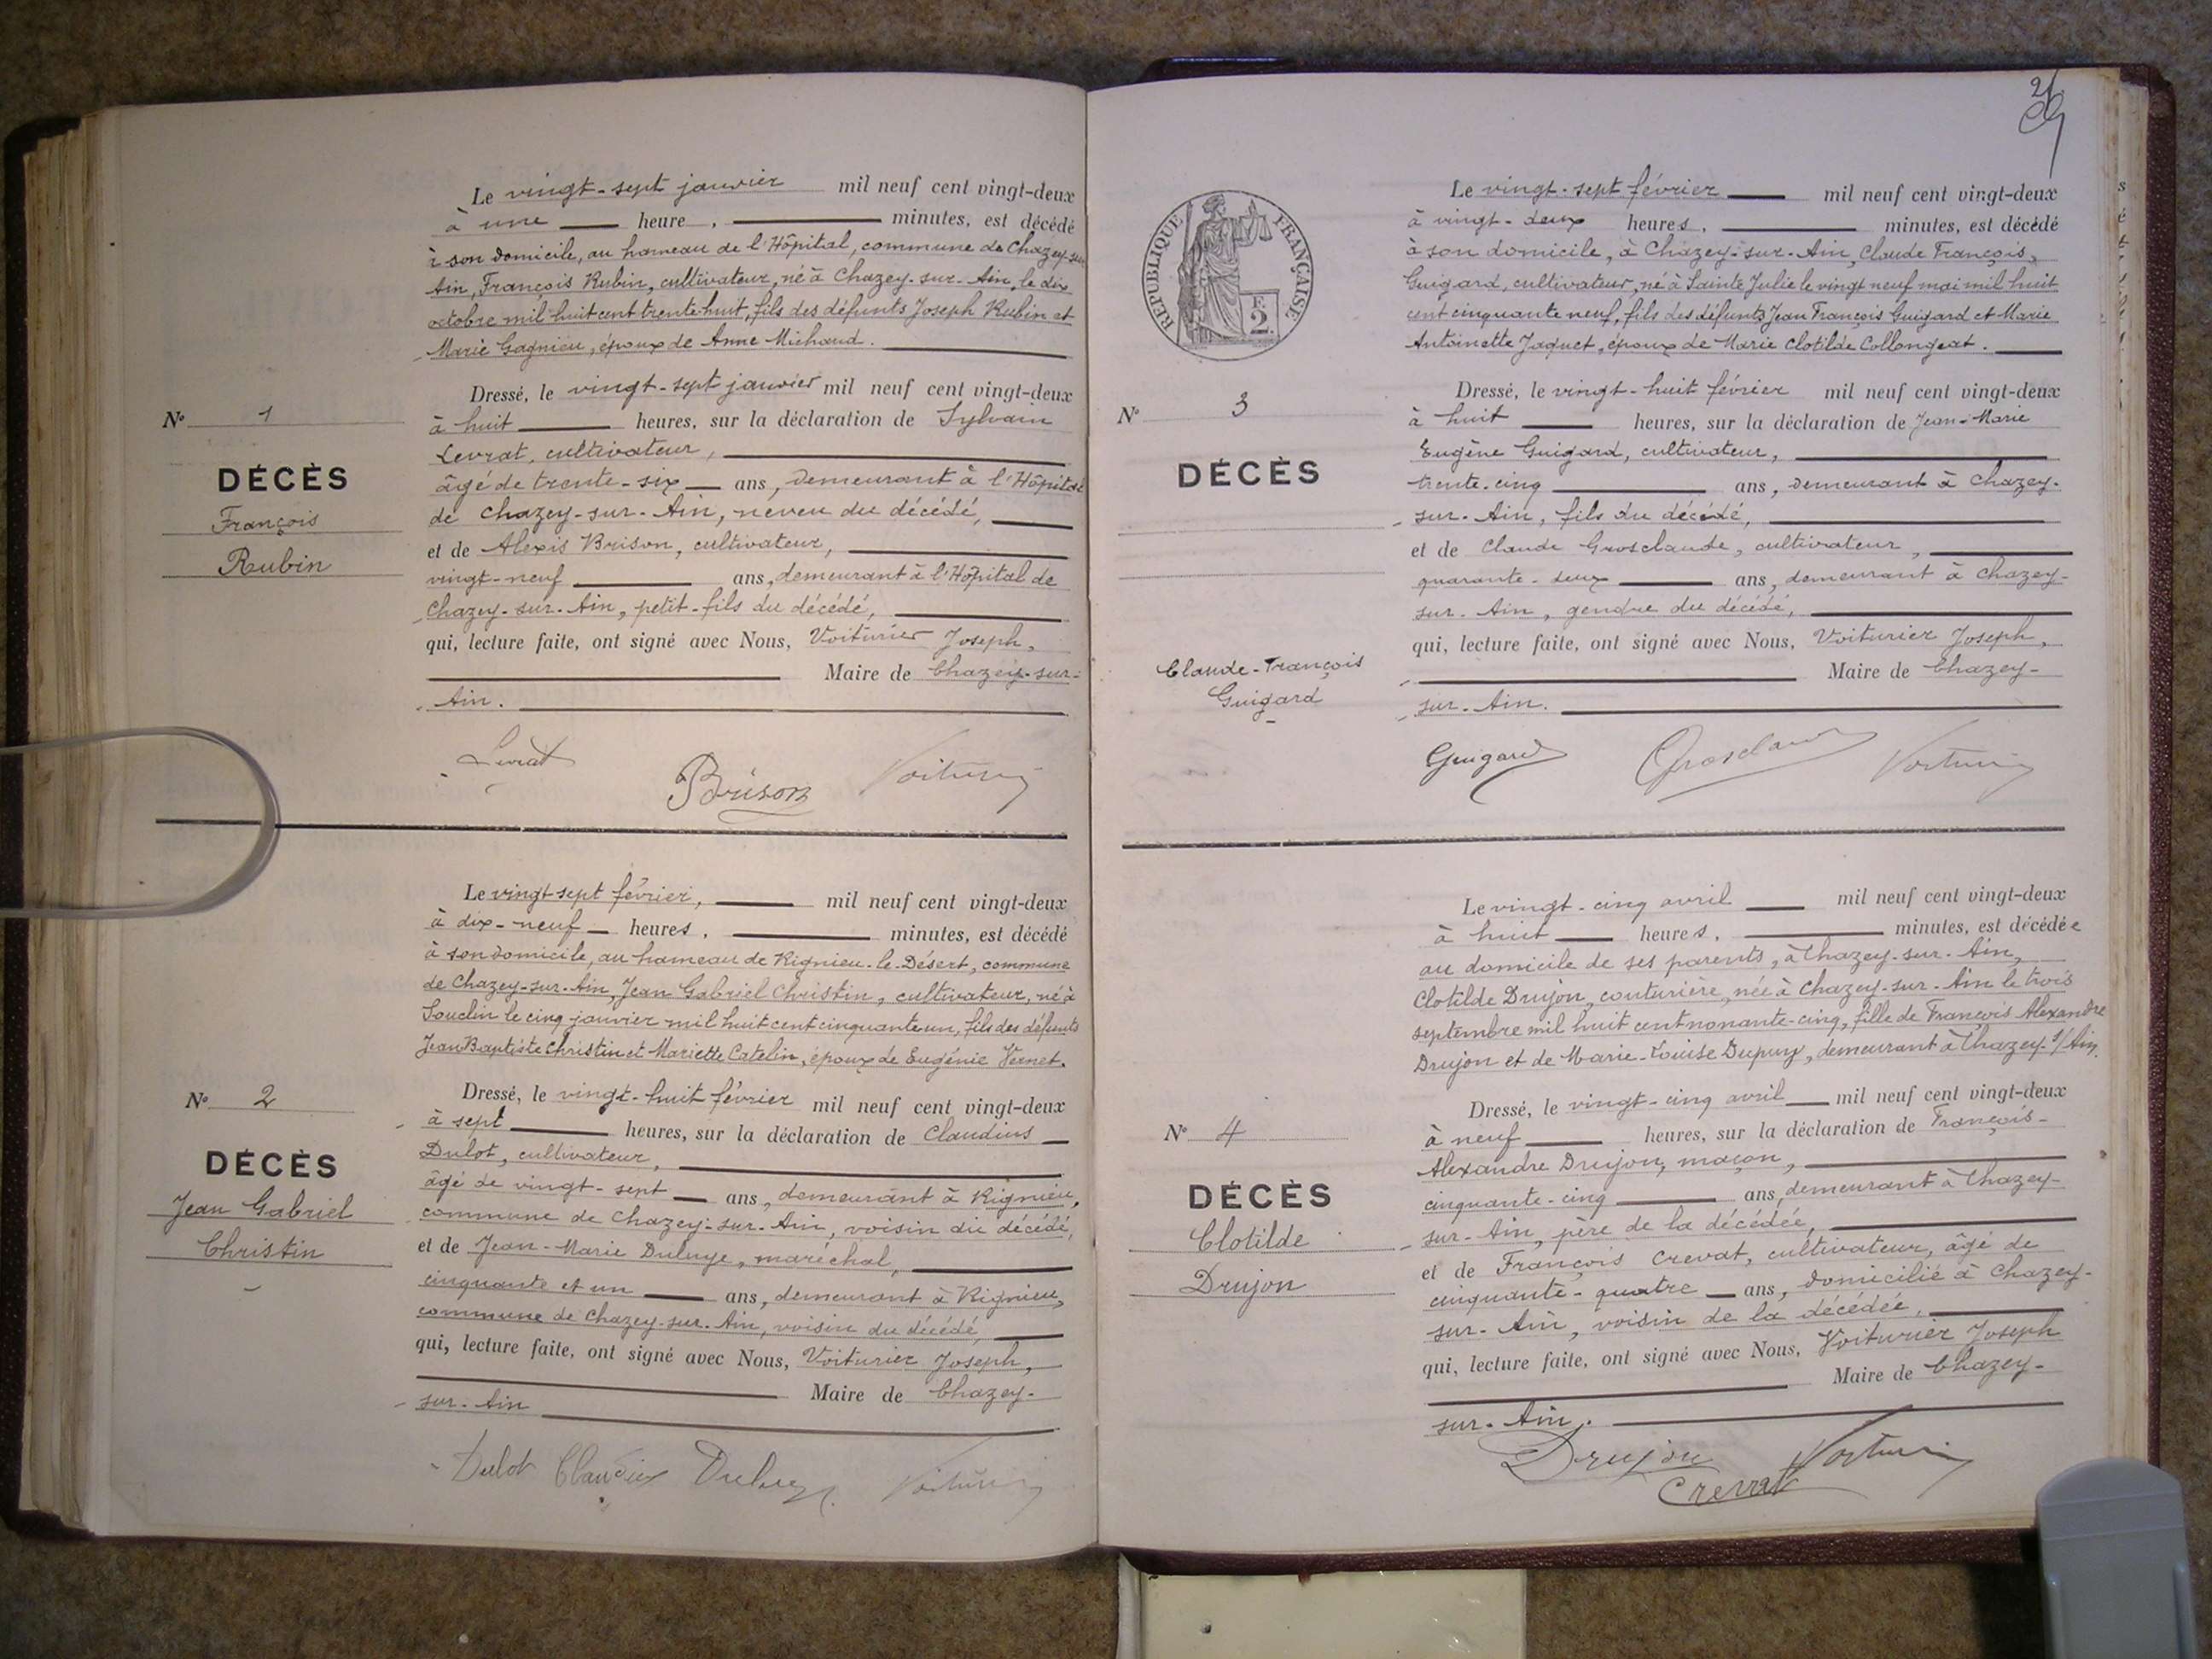 Le vingt-sept janvier mil neuf cent vingt-deux
à une heure, minutes, est décédé
à son domicile, au hameau de l'Hôpital, commune de Chazey-sur
Ain, François Rubin, cultivateur, né à Chazey-sur-Ain, le dix
octobre mil huit cent trente-huit, fils des défunts Joseph Rubin et
Marie Gagnieu, époux de Anne Michaud.
Dressé, le vingt-sept janvier mil neuf cent vingt-deux
à huit heures, sur la déclaration de Sylvain
Levrat, cultivateur,
âgé de trente-six ans, demeurant à l'Hôpital
de Chazey-sur-Ain, neveu du décédé,
et de Alexis Brison, cultivateur,
vingt-neuf ans, demeurant à l'Hôpital de
Chazey-sur-Ain, petit-fils du décédé,
qui, lecture faite, ont signé avec Nous, Voiturier Joseph,
Maire de Chazey-sur-
Ain.
N° 1
DÉCÈS
François
Rubin
Levrat Brison Voiturier
Le vingt-sept février, mil neuf cent vingt-deux
à dix-neuf heures, minutes, est décédé
à son domicile, au hameau de Rignieu-le-Désert, commune
de Chazey-sur-Ain, Jean Gabriel Christin, cultivateur, né à
Souclin le cinq janvier mil huit cent cinquante un, fils des défunts
Jean Baptiste Christin et Mariette Catelin, époux de Eugénie Vernet.
Dressé, le vingt-huit février mil neuf cent vingt-deux
à sept heures, sur la déclaration de Claudius
Dulot, cultivateur,
âgé de vingt-sept ans, demeurant à Rignieu,
commune de Chazey-sur-Ain, voisin du décédé,
et de Jean-Marie Duluye, maréchal,
cinquante et un ans, demeurant à Rignieu,
commune de Chazey-sur-Ain, voisin du décédé,
qui, lecture faite, ont signé avec Nous, Voiturier Joseph,
Maire de Chazey-
sur-Ain
N° 2
DÉCÈS
Jean Gabriel
Christin
Dulot Claudius Duluye Voiturier
RÉPUBLIQUE FRANÇAISE
2 F.
Le vingt-sept février mil neuf cent vingt-deux
à vingt-deux heures, minutes, est décédé
à son domicile, à Chazey-sur-Ain, Claude François,
Guigard, cultivateur, né à Sainte Julie le vingt neuf mai mil huit
cent cinquante neuf, fils des défunts Jean François Guigard et Marie
Antoinette Jaquet, époux de Marie Clotilde Collongeat.
Dressé, le vingt-huit février mil neuf cent vingt-deux
à huit heures, sur la déclaration de Jean-Marie
Eugène Guigard, cultivateur,
trente-cinq ans, demeurant à Chazey-
sur-Ain, fils du décédé,
et de Claude Grosclaude, cultivateur,
quarante-deux ans, demeurant à Chazey-
sur-Ain, gendre du décédé,
qui, lecture faite, ont signé avec Nous, Voiturier Joseph,
Maire de Chazey-
sur-Ain.
N° 3
DÉCÈS
Claude-François
Guigard
Guigard Grosclaude Voiturier
Le vingt-cinq avril mil neuf cent vingt-deux
à huit heures, minutes, est décédée
au domicile de ses parents, à Chazey-sur-Ain,
Clotilde Drujon, couturière, née à Chazey-sur-Ain le trois
septembre mil huit cent nonante-cinq, fille de François Alexandre
Drujon et de Marie-Louise Dupuy, demeurant à Chazey-s/Ain.
Dressé, le vingt-cinq avril mil neuf cent vingt-deux
à neuf heures, sur la déclaration de François-
Alexandre Drujon, maçon,
cinquante-cinq ans, demeurant à Chazey-
sur-Ain, père de la décédée,
et de François Crevat, cultivateur, âgé de
cinquante-quatre ans, domicilié à Chazey-
sur-Ain, voisin de la décédée,
qui, lecture faite, ont signé avec Nous, Voiturier Joseph
Maire de Chazey-
sur-Ain.
N° 4
DÉCÈS
Clotilde
Drujon
Drujon Voiturier
Crevat